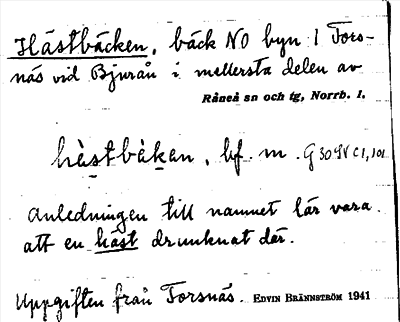 Hästbäcken, bäck NO byn i Tors-
näs vid Bjurån i mellersta delen av
Råneå sn och tg, Norrb. l.
hästbäken, bf. m.
Anledningen till namnet lär vara
att en häst drunknat där.
Uppgiften från Torsnäs. EDVIN BRÄNNSTRÖM 1941